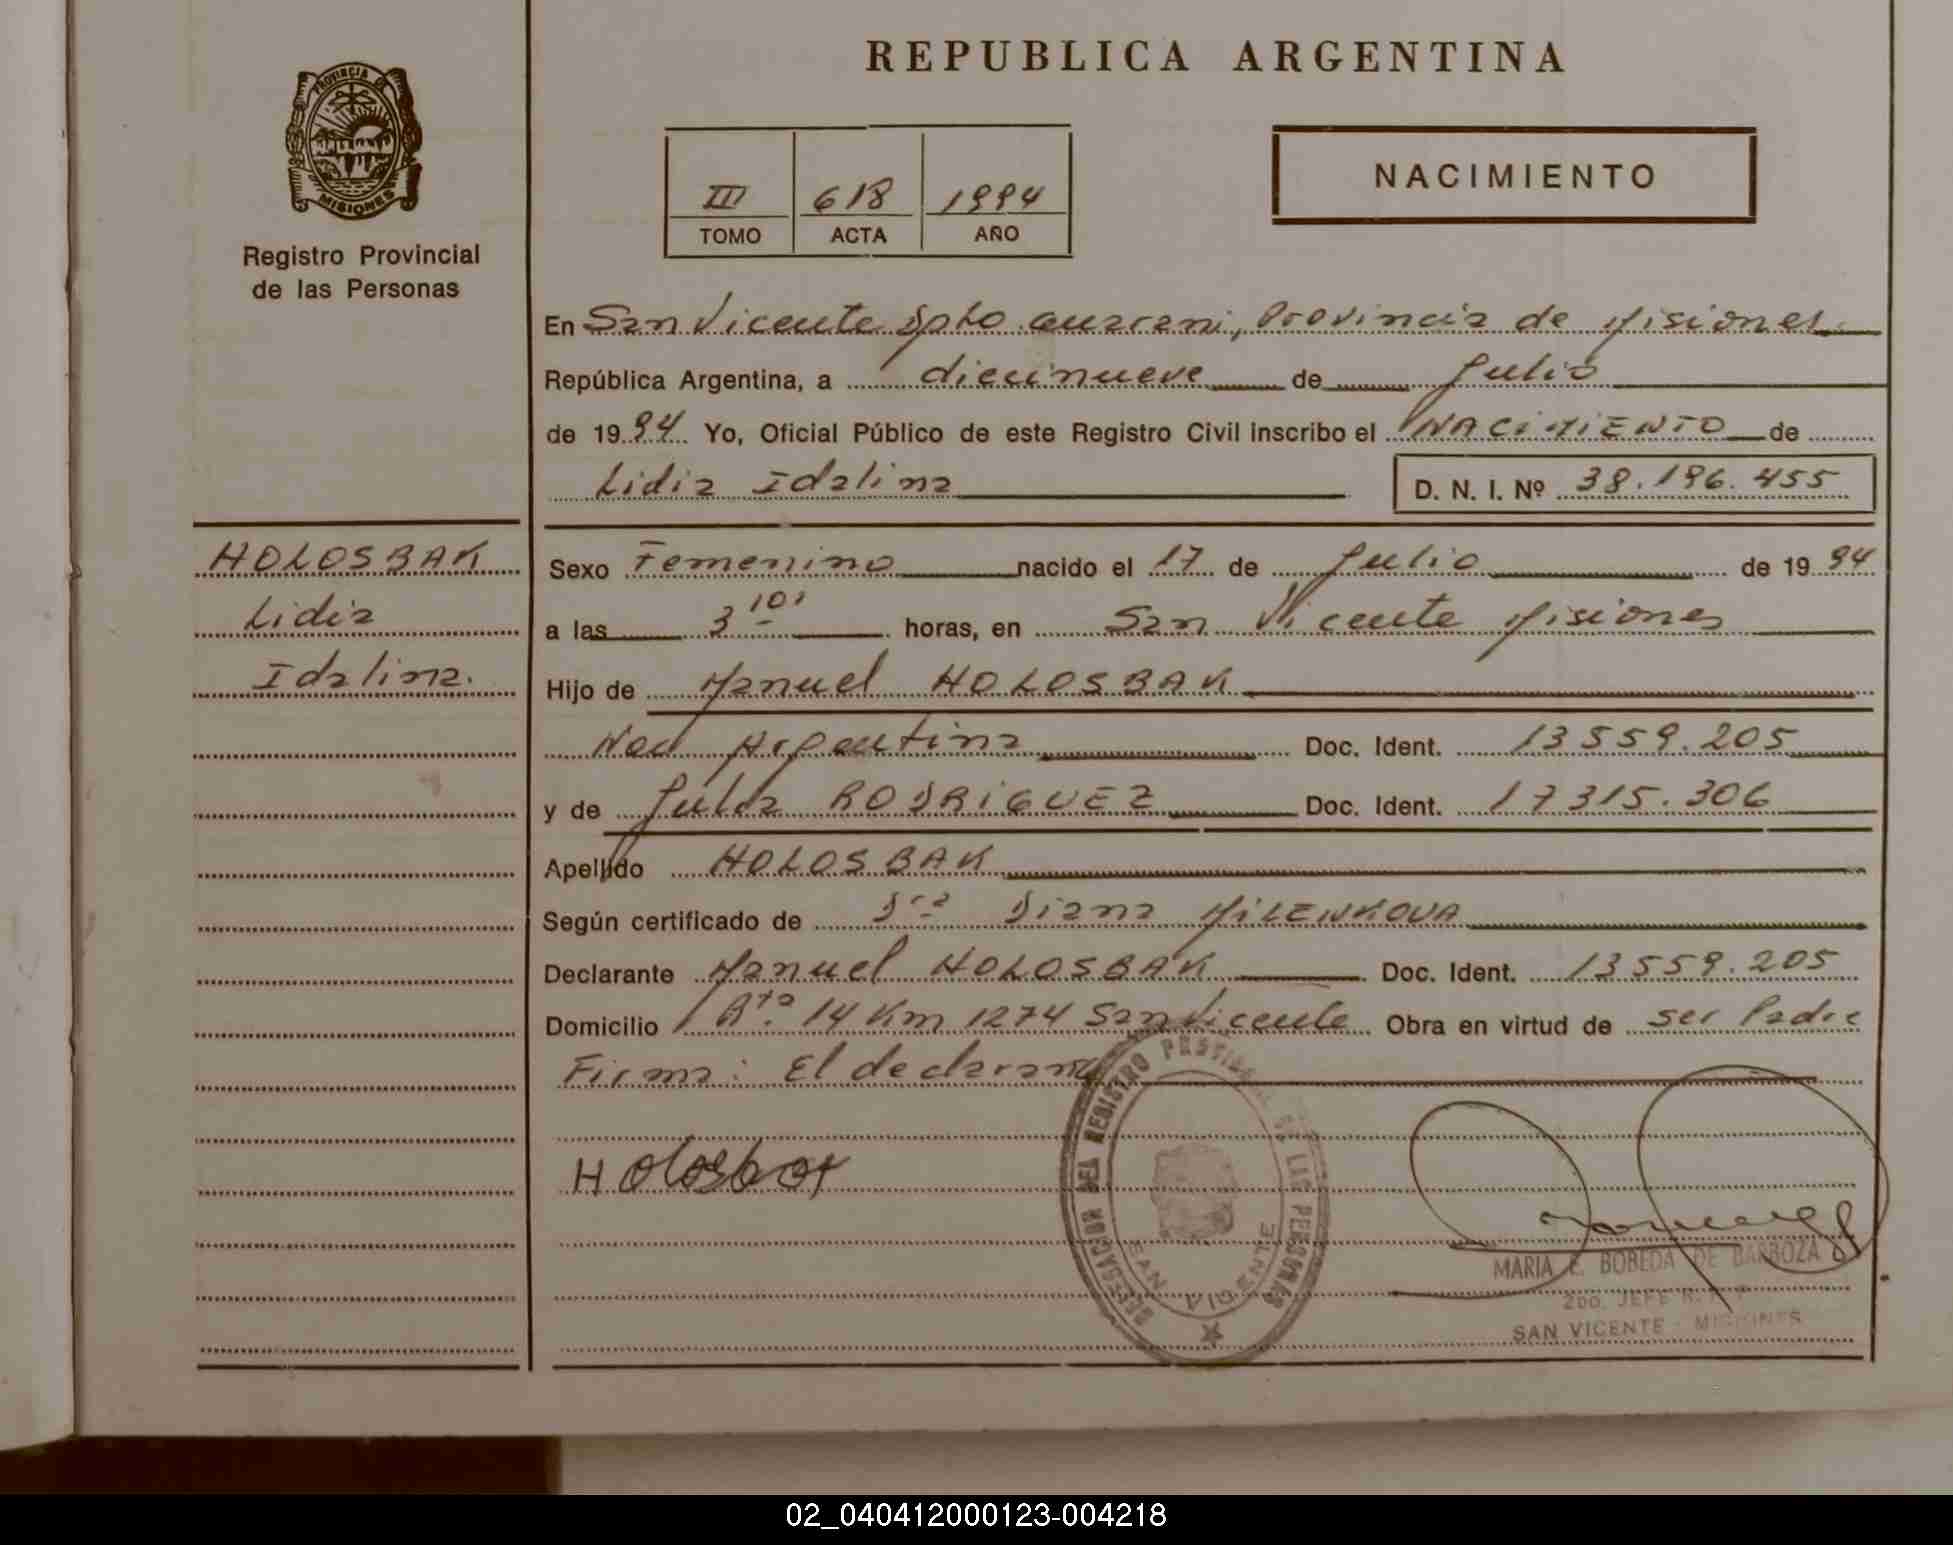 REPUBLICA ARGENTINA
PROVINCIA DE
MISIONES
Registro Provincial
de las Personas
III 618 1994
TOMO ACTA AÑO
NACIMIENTO
En San Vicente Dpto Guarani, Provincia de Misiones
República Argentina, a diecinueve de Julio
de 1994 Yo, Oficial Público de este Registro Civil inscribo el NACIMIENTO de
Lidia Idalina D. N. I. Nº 38.196.455
HOLOSBAK
Lidia
Idalina.
Sexo Femenino nacido el 17 de Julio de 1994
a las 3 10' horas, en San Vicente Misiones
Hijo de Manuel HOLOSBAK
Nac Argentina Doc. Ident. 13559.205
y de Julia RODRIGUEZ Doc. Ident. 17315.306
Apellido HOLOSBAK
Según certificado de Dra Diana MILENKOVA
Declarante Manuel HOLOSBAK Doc. Ident. 13559.205
Domicilio Rta. 14 Km 1274 San Vicente Obra en virtud de ser Padre
Firma: El declarante
Holosbak
REGISTRO
DE LAS PERSONAS
SAN VICENTE
MARIA E. BOBEDA DE BARBOZA
2do. JEFE
SAN VICENTE - MISIONES
02_040412000123-004218